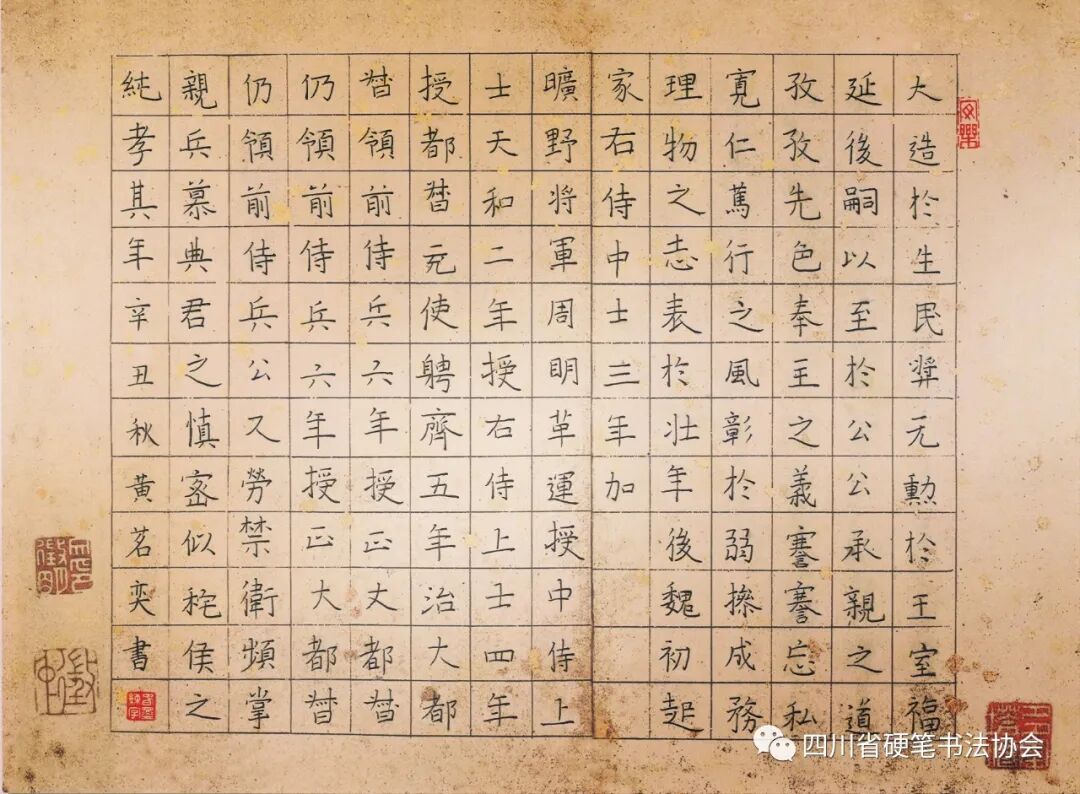 大造於生民羿元勲於王室福
延後嗣以至於公公承親之道
孜孜先色奉主之義謇謇忘私
寬仁蔫行之風彰於弱操成務
理物之志表於壯年後魏初起
家右侍中士三年加
曠野將軍周明革運授中侍上
士天和二年授右侍上士四年
授都督元使聘齊五年治大都
督領前侍兵六年授正丈都督
仍領前侍兵六年授正大都督
仍領前侍兵公又勞禁衛頻掌
親兵慕典君之慎密似秺侯之
純孝其年辛丑秋黃茗奕書
四川省硬笔书法协会